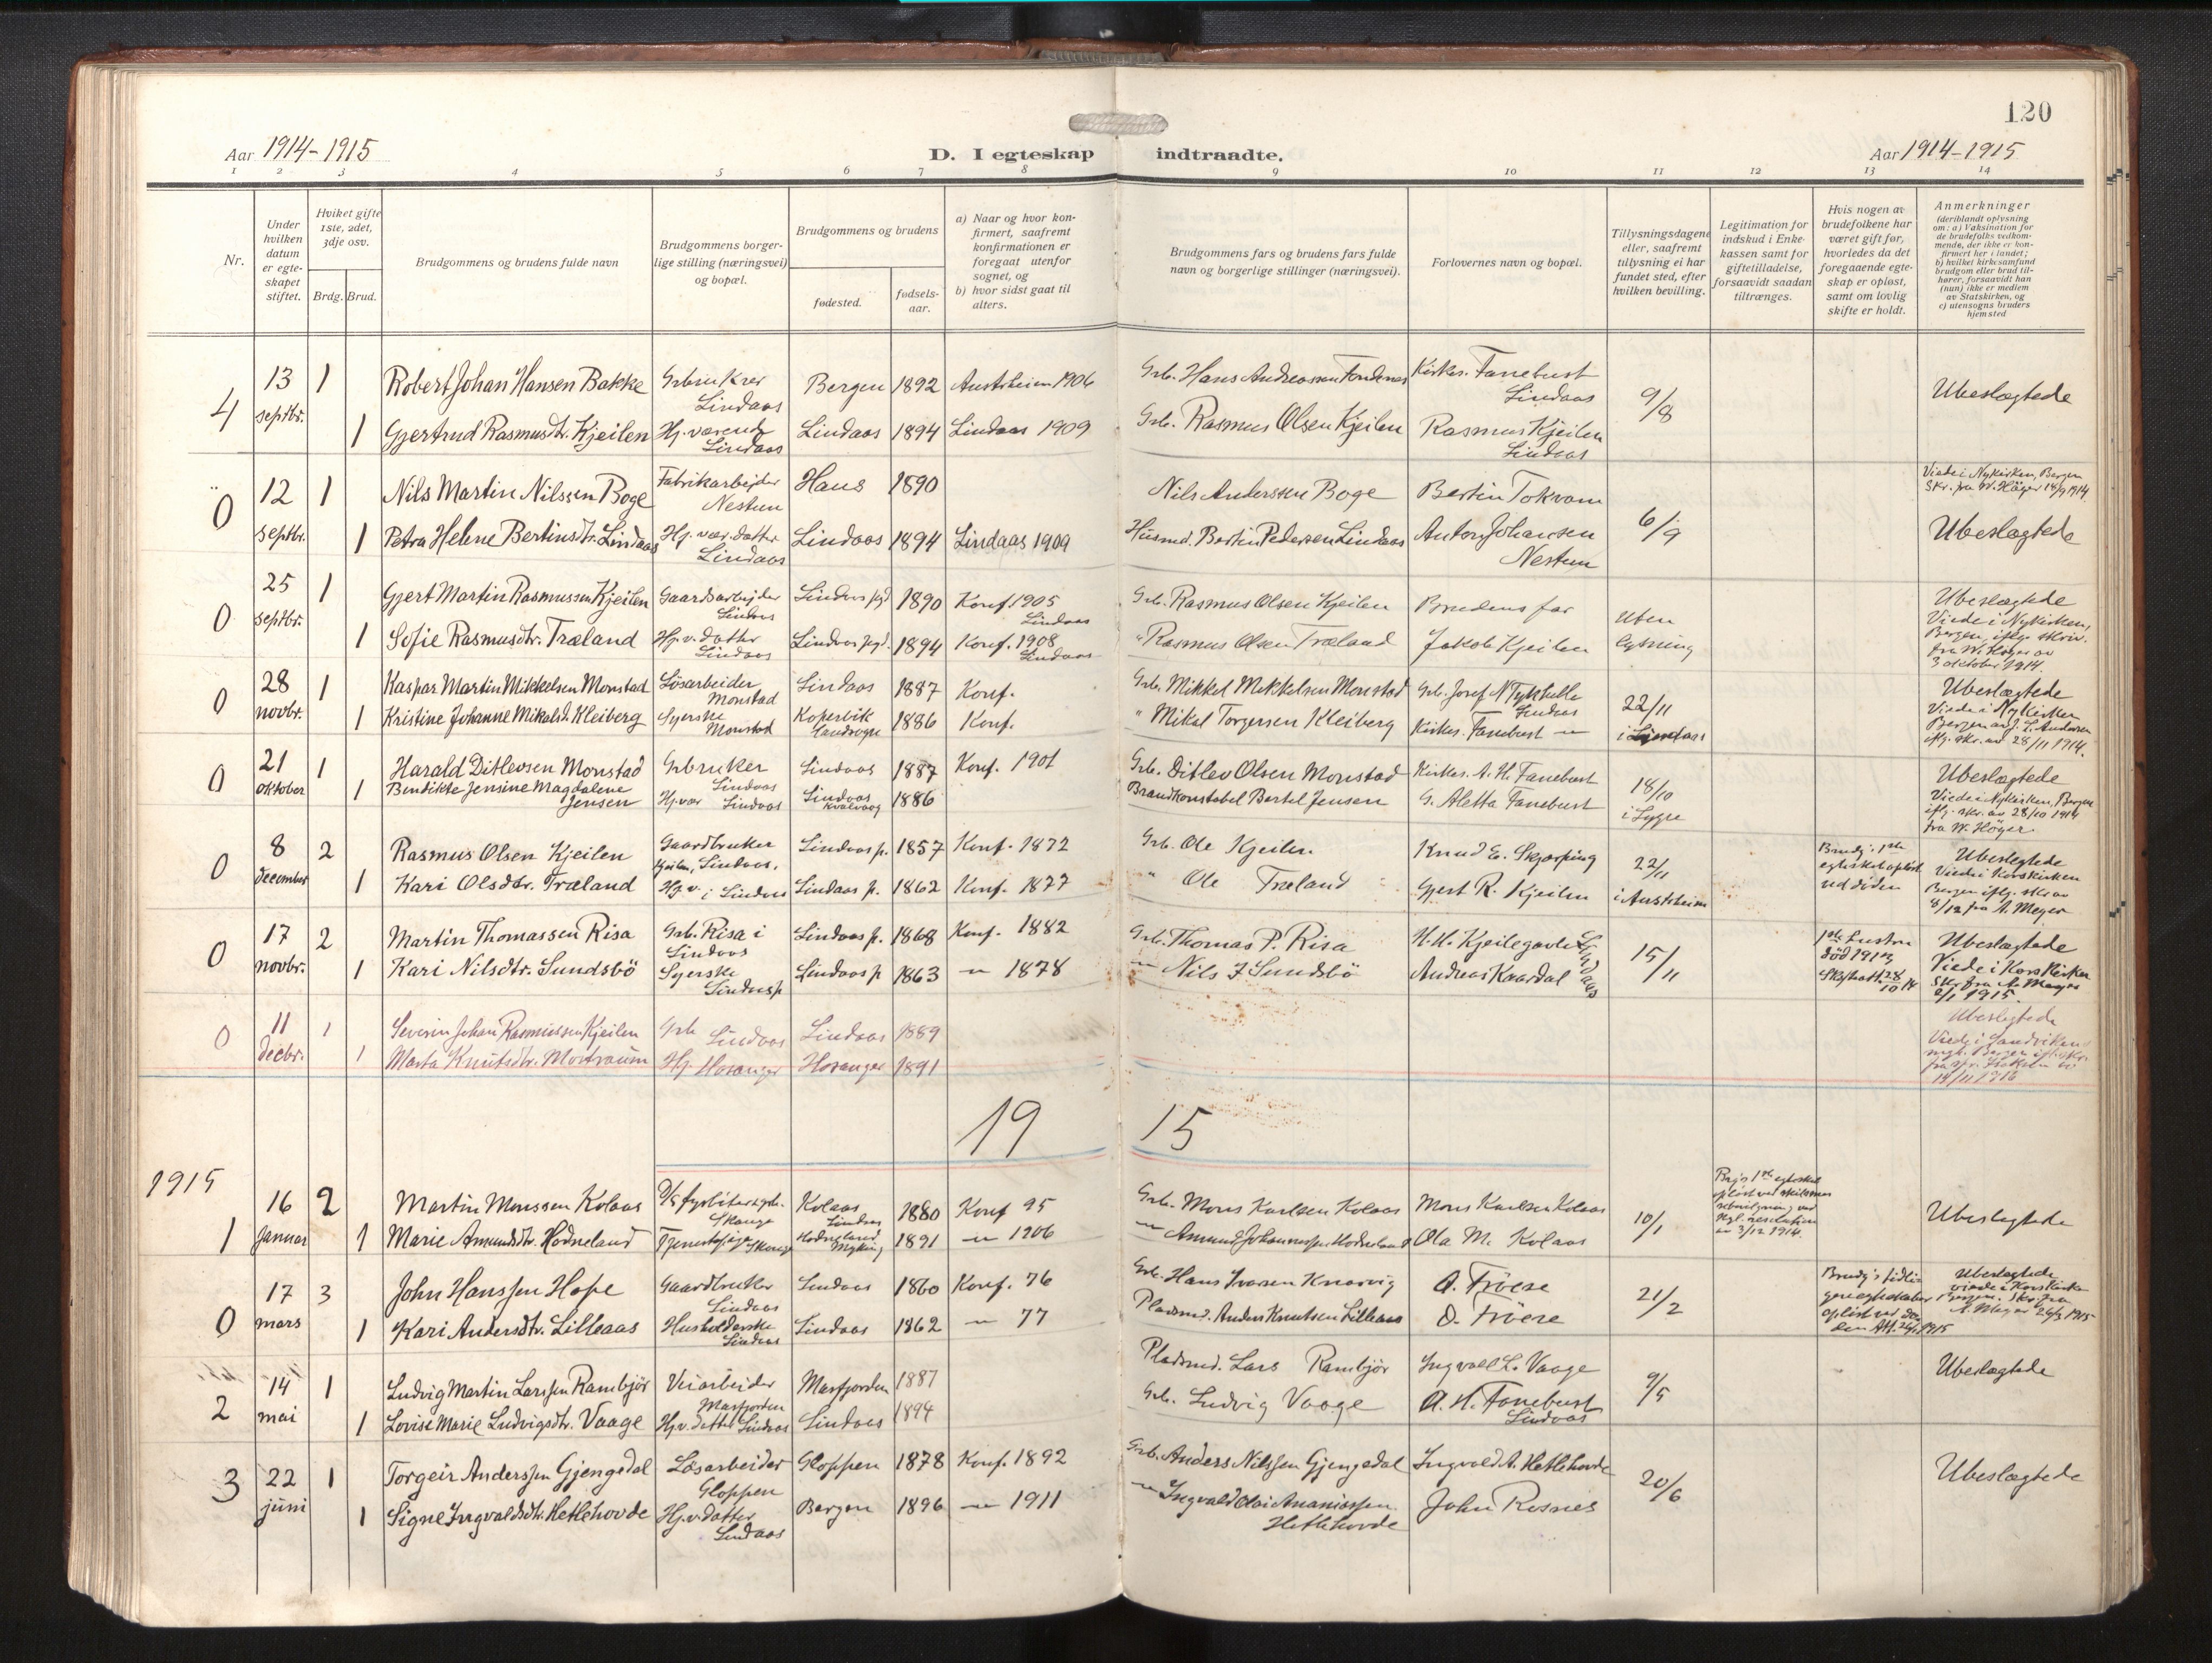 120
Aar 1914-1915
D. I egteskap indtraadte.
Aar 1914-1915
1 2 3 4 5 6 7 8 9 10 11 12 13 14
Nr.
Under hvilken datum er egteskapet stiftet.
Hviket gifte 1ste, 2det, 3dje osv.
Brdg. Brud.
Brudgommens og brudens fulde navn
Brudgommens borgerlige stilling (næringsvei) og bopæl.
Brudgommens og brudens
fødested.
fødselsaar.
a) Naar og hvor konfirmert, saafremt konfirmationen er foregaat utenfor sognet, og
b) hvor sidst gaat til alters.
Brudgommens fars og brudens fars fulde navn og borgerlige stillinger (næringsvei).
Forlovernes navn og bopæl.
Tillysningsdagene eller, saafremt tillysning ei har fundet sted, efter hvilken bevilling.
Legitimation for indskud i Enkekassen samt for giftetilladelse, forsaavidt saadan tiltrænges.
Hvis nogen av brudefolkene har været gift før, hvorledes da det foregaaende egteskap er opløst, samt om lovlig skifte er holdt.
Anmerkninger (deriblandt oplysning om: a) Vaksination for de brudefolks vedkommende, der ikke er konfirmert her i landet; b) hvilket kirkesamfund brudgom eller brud tilhører, forsaavidt han (hun) ikke er medlem av Statskirken, og c) utensogns bruders hjemsted
4 13 septbr. 1 Robert Johan Hansen Bakke Lindaas Bergen 1892 Austrheim 1906 Grb. Hans Andreassen Kirkes. Fanebust Lindaas 9/8 Ubeslægtede
1 Gjertrud Rasmusdtr. Kjeilen Hj. værende Lindaas Lindaas 1894 Lindaas 1909 Grb. Rasmus Olsen Kjeilen Rasmus Kjeilen Lindaas
0 12 septbr. 1 Nils Martin Nilssen Boge Fabrikarbejder Nestun Haus 1890 Nils Anderssen Boge Bertin Tokvam 6/9 Viede i Nykirken, Bergen Skr. fra W. Höger 14/9 1914 Ubeslægtede
1 Petra Helene Bertinsdtr. Lindaas Hj. vær. datter Lindaas Lindaas 1894 Lindaas 1909 Husmd. Bertin Pedersen Lindaas Anton Johansen Nestun
0 25 septbr. 1 Gjert Martin Rasmussen Kjeilen Gaardsarbejder Lindaas 1890 Konf. 1905 Lindaas Grb. Rasmus Olsen Kjeilen Brudens far Uten lysning Ubeslægtede Viede i Nykirken, Bergen, iflg. skriv. fra W. Höger av 3 oktober 1914.
1 Sofie Rasmusdtr. Træland Hj. v. datter Lindaas 1894 Konf. 1908 Lindaas " Rasmus Olsen Træland Jakob Kjeilen
0 28 novbr. 1 Kaspar Martin Mikkelsen Monstad Løsarbeider Monstad Lindaas 1887 Konf. Grb. Mikkel Mikkelsen Monstad Grb. Josef 22/11 i Lindaas Ubeslægtede Viede i Nykirken Bergen iflg. skr. av 28/11 1914.
1 Kristine Johanne Mikalsd. Kleiberg Syerske Monstad 1886 Konf. " Mikal Torgersen Kleiberg Kirkes. Fanebust
0 21 oktober 1 Harald Ditlevsen Monstad Grbruker Lindaas Lindaas 1887 Konf. 1901 Grb. Ditlev Olsen Monstad Kirkes. A. H. Fanebust 18/10 i Lygre Ubeslægtede Viede i Nykirken, Bergen iflg. skr. av 28/10 1914 fra W. Höger
1 Bendikte Jensine Magdalene Jensen Hj. vær Lindaas Lindaas 1886 Brandkonstabel Bertel Jensen G. Aletta Fanebust
0 8 december 2 Rasmus Olsen Kjeilen Gaardbruker Kjeilen, Lindaas. Lindaas p. 1857 Konf. 1872 Grb. Ole Kjeilen 22/11 i Austrheim Brudg. 1ste egteskab opløst ved døden Ubeslegtede Viede i Korskirken Bergen iflg. skr. av 8/12 fra A. Meyer
1 Kari Olsdtr. Træland Hj. v. i Lindaas Lindaas p. 1862 Konf. 1877 " Ole Træland Gjert R. Kjeilen
0 17 novbr. 2 Martin Thomassen Risa Grb. Risa i Lindaas Lindaas p. 1868 Konf. 1882 Grb. Thomas P. Risa 15/11 Ubeslægtede Viede i Korskirken Skr. fra A. Meyer 2/1 1915.
1 Kari Nilsdtr. Sundsbö Syerske Lindaas p Lindaas p 1863 — 1878 — Nils J Sundsbö
0 11 decbr. 1 Severin Johan Rasmussen Kjeilen Grb Lindaas Lindaas 1889 Ubeslegtede Viede i Sandviken
1 Marta Knutsdtr. Mostraum Hj. Hosanger Hosanger 1891
19 15
1915
1 16 Januar 2 Martin Monssen Kolaas Skauge Kolaas Lindaas 1880 Konf 95 Grb. Mons Karlsen Kolaas Mons Karlsen Kolaas 10/1 Ubeslegtede
1 Marie Amundsdtr. Hodneland 1891 — 1906 — Amund Johannessen Hodneland Ola M. Kolaas
0 17 mars 3 John Hanssen Hope Gaardbruker Lindaas Lindaas 1860 Konf. 76 Grb. Hans Ivarsen Knarvig O. Fröese 21/2 Ubeslegtede viede i Korskirken Bergen. Skr. fra A. Meyer
1 Kari Andersdtr. Lilleaas Husholderske Lindaas Lindaas 1862 — 77 Pladsmd. Anders Knutsen Lilleaas O. Fröese
2 14 mai 1 Ludvig Martin Larssen Rambjör Veiarbeider Masfjorden Masfjorden 1887 Pladsmd. Lars Rambjör Ingvald L. Vaage 9/5 Ubeslægtede
1 Lovise Marie Ludvigsdtr. Vaage Hj. v. datter Lindaas Lindaas 1894 Grb. Ludvig Vaage A. H. Fanebust Lindaas
3 22 juni 1 Torgeir Anderssen Gjengedal Løsarbeider Gloppen Gloppen 1878 Konf. 1892 Grb. Anders Nilssen Gjengedal Ingvald A. Hetlehovde 20/6 Ubeslægtede
1 Signe Ingvaldsdtr. Hetlehovde Hj. v. datter Lindaas Bergen 1896 — 1911 — Ingvald Ananiassen Hetlehovde John Rosnes